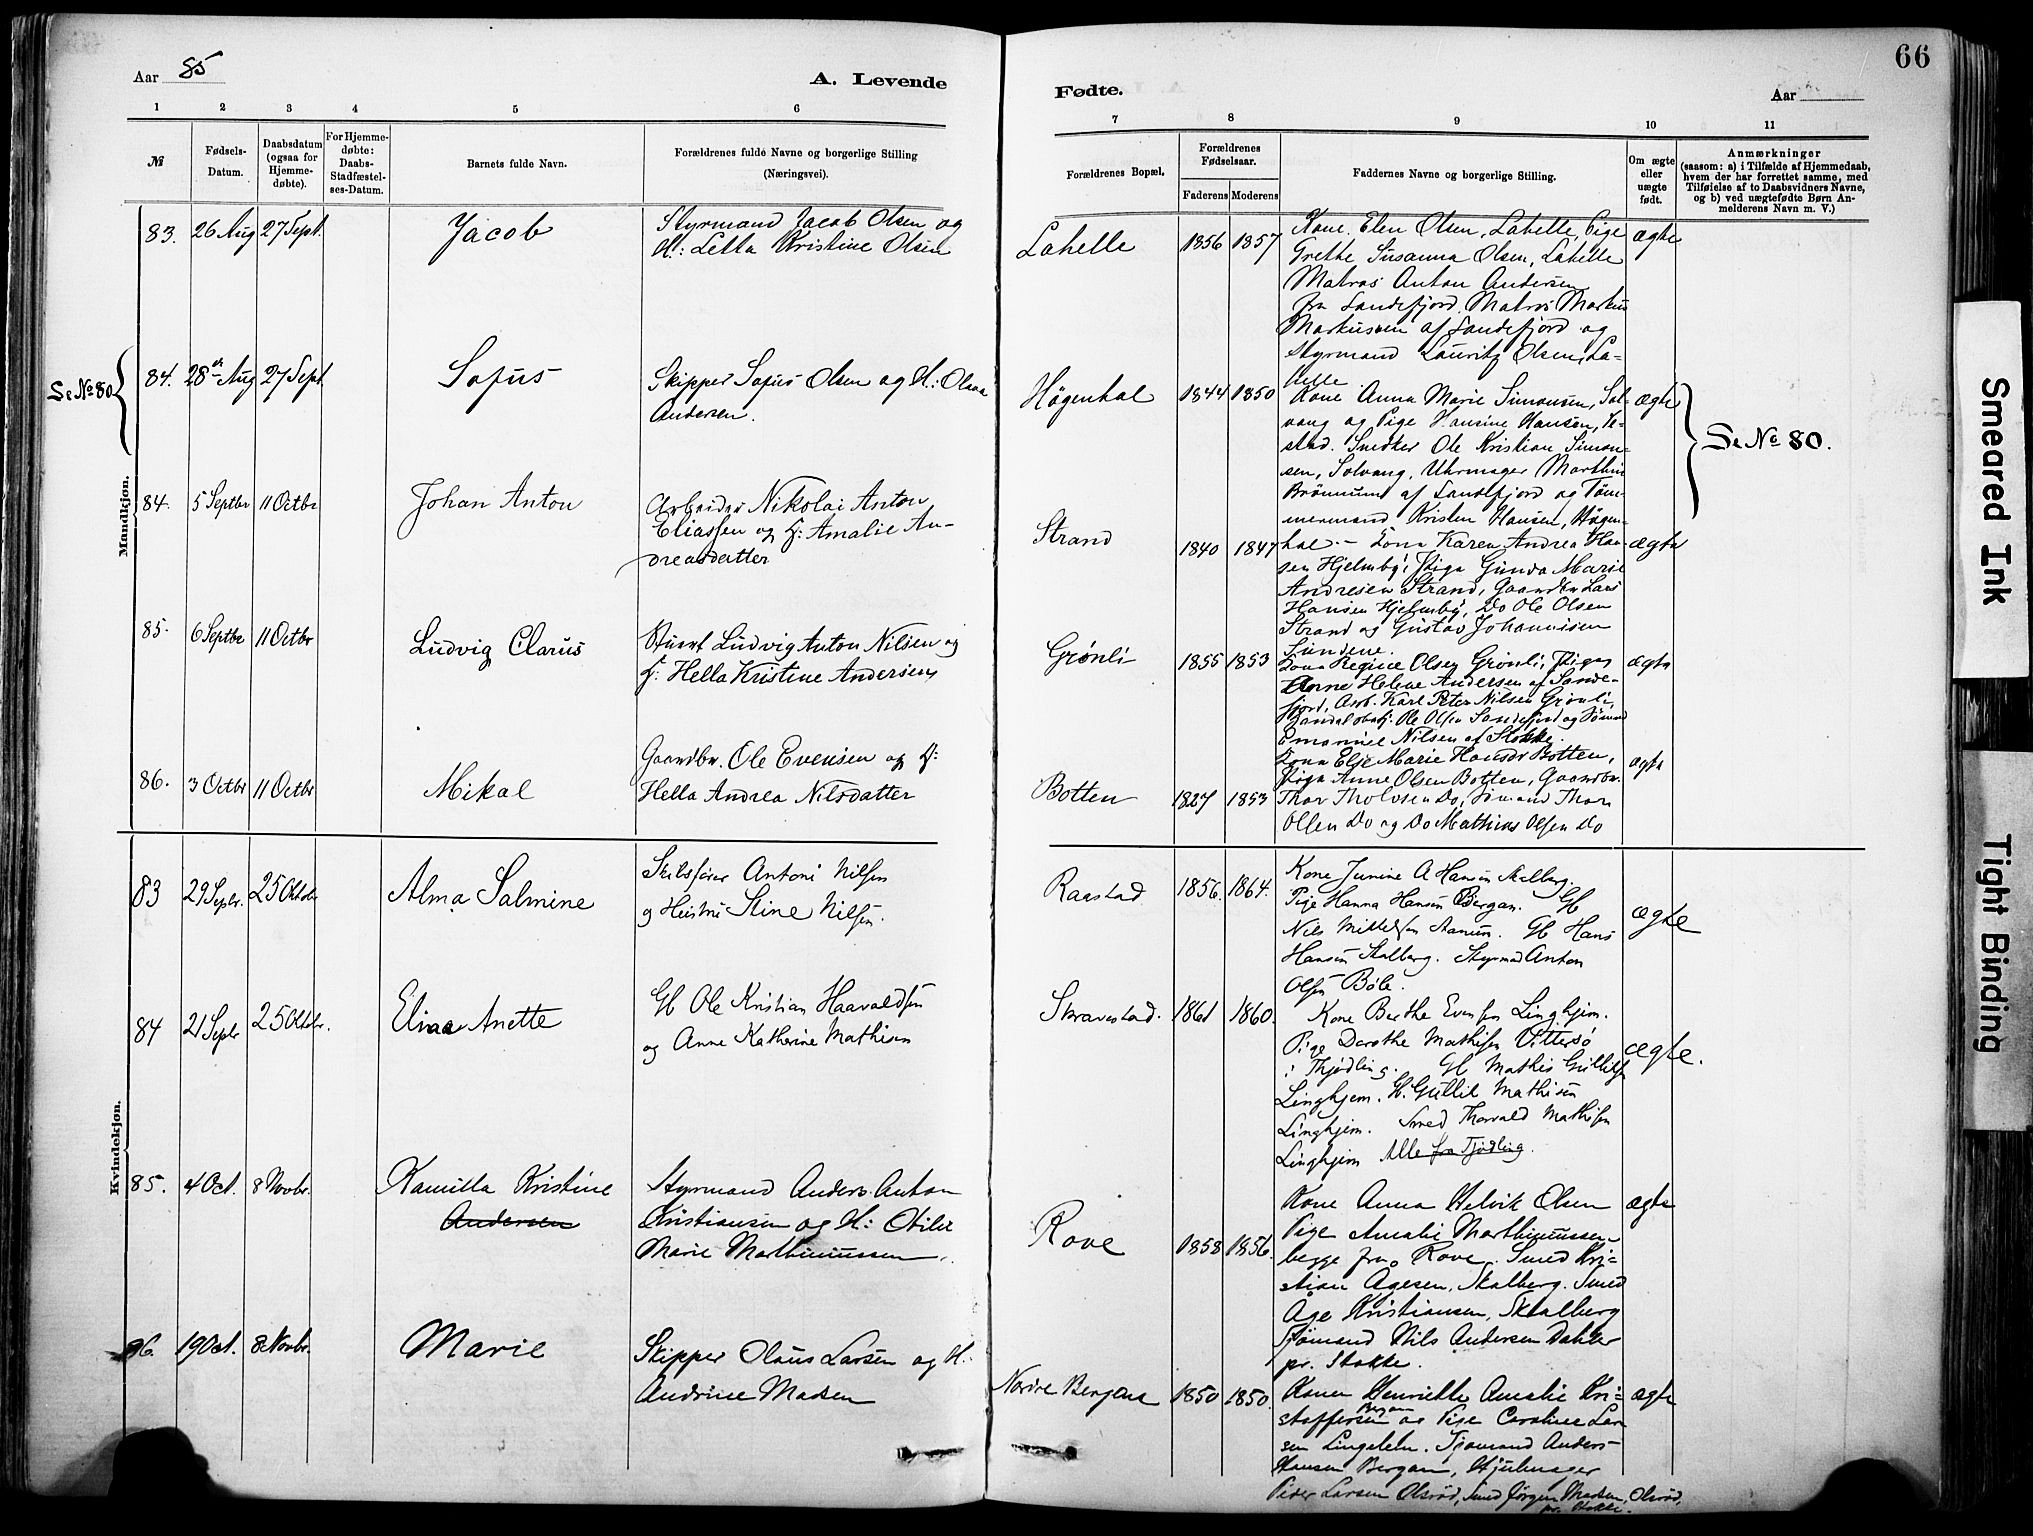 66
Aar 85
A. Levende
Fødte.
Aar
1 2 3 4 5 6
7 8 9 10 11
№
Fødsels-
Datum.
Daabsdatum
(ogsaa for
Hjemme-
døbte).
For Hjemme-
døbte:
Daabs-
Stadfæstel-
ses-Datum.
Barnets fulde Navn.
Forældrenes fulde Navne og borgerlige Stilling
(Næringsvei).
Forældrenes Bopæl.
Forældrenes
Fødselsaar.
Faderens Moderens
Faddernes Navne og borgerlige Stilling.
Om ægte
eller
uægte
født.
Anmærkninger
(saasom: a) i Tilfælde af Hjemmedaab,
hvem der har forrettet samme, med
Tilføielse af to Daabsvidners Navne,
og b) ved uægtefødte Børn An-
melderens Navn m. V.)
Mandkjøn.
83. 26 Aug 27 Sept. Jacob
Styrmand Jacob Olsen og
H: Letta Kristine Olsen
Lahelle 1856 1857
Kone Elen Olsen, Lahelle, Pige
Grethe Susanna Olsen, Lahelle
Matros Anton Andersen
fra Sandefjord, Matros Markus
Markussen af Sandefjord og
Styrmand Lauritz Olsen, La-
helle
ægte
Se No 80
84. 28de Aug 27 Sept Sofus
Skipper Sofus Olsen og H: Olava
Andersen.
Högenhal 1844 1850
Kone Anna Marie Simonsen, Sol-
vang og Pige Hansine Hansen, Ve-
stad. Snedker Ole Kristian Simon-
sen, Solvang, Uhrmager Marthin
Brönnum af Sandefjord og Töm-
mermand Kristen Hansen, Högen-
hal.
ægte
Se No 80.
84. 5 Septbr 11 Octbr Johan Anton
Arbeider Nikolai Anton
Eliassen og H: Amalie An-
dreasdatter
Strand 1840 1847
Kona Karen Andrea Han-
sen Hjelmby, Piga Gunda Marie
Andresen Strand, Gaardbr Lars
Hansen Hjelmby, Do Ole Olsen
Strand og Gustav Johannisen
Sundene.
ægte
85. 6 Septbr 11 Octbr Ludvig Clarus
Stuert Ludvig Anton Nilsen og
H: Hella Kristine Andersen
Grönli 1855 1853
Kona Regine Olsen Grönli, Piga
Anne Helene Andersen af Sande-
fjord, Arb. Karl Peter Nilsen Grönli,
Handelsbetj. Ole Olsen Sandefjord og Sömand
Emanuel Nilsen af Stokke.
ægte
86. 3 Octbr 11 Octbr Mikal
Gaardbr. Ole Evensen og H:
Hella Andrea Nilsdatter
Botten 1827 1853
Kona Else Marie Hansdr Botten,
Piga Anne Olsen Botten, Gaardbr.
Thor Tholvsen Do, Sömand Thor
Olsen Do og Do Mathias Olsen Do
ægte
Kvindekjøn.
83 29 Septr. 25 Oktobr Alma Salmine
Skibsförer Antoni Nilsen
og Hustru Stine Nilsen.
Raastad 1856. 1864.
Kone Junine A Hansen Skalberg.
Pige Hanna Hansen Bergan. Gb
Nils Mikkelsen Aanum. Gb Hans
Hansen Skalberg. Styrmd Anton
Olsen Böle.
ægte
84 21 Septr 25 Oktbr. Elina Anette
Gb Ole Kristian Haavaldsen
og Anne Katherine Mathisen
Skravestad. 1861 1860.
Kone Berthe Evensen Linghjem.
Pige Dorothe Mathisen Vittersö
i Thjödling. Gb Mathis Gulliksen
Linghjem. H. Gullik Mathisen
Linghjem. Smed Thorvald Mathisen
Linghjem Alle fra Tjödling.
ægte.
85. 4 Oct. 8 Novbr. Kamilla Kristine
Andersen
Styrmand Anders Anton
Kristiansen og H: Otilie
Marie Marthinussen.
Rove 1858 1856.
Kone Anna Helvik Olsen
Pige Amalie Marthinussen
begge fra Rove. Smed Kri-
stian Agesen, Skalberg. Smed
Åge Kristiansen, Skalberg
Sömand Nils Andersen Dahler
pr. Stokke.
ægte
86. 19 Oct. 8 Novbr. Marie
Skipper Olaus Larsen og H:
Andrine Madsen
Nordre Bergan 1850 1850.
Konen Henriette Amalie Kri-
stoffersen Bergan og Pige Caroline Lar
sen Lingelem. Sjömand Anders
Hansen Bergan, Hjulmager
Peder Larsen Olsröd, Smed Jörgen Madsen, Olsröd,
pr. Stokke.
ægte
Smeared Ink
Tight Binding